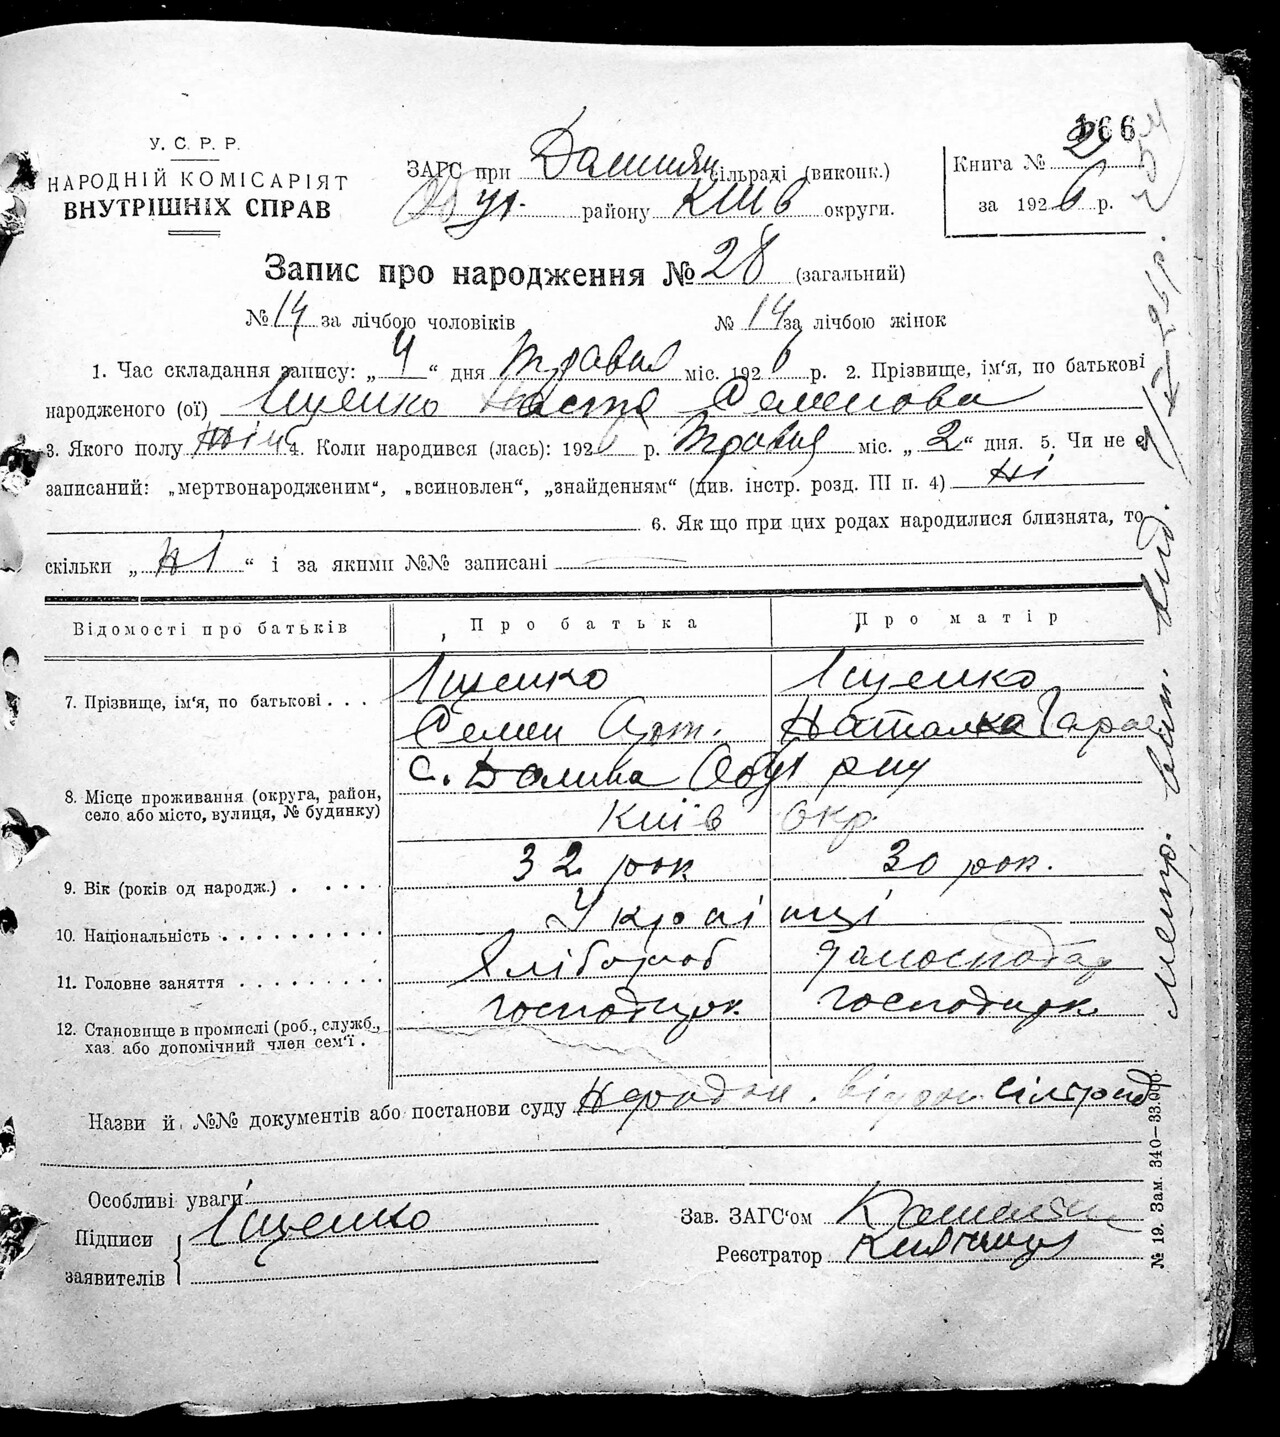 166
У. С. Р. Р.
НАРОДНІЙ КОМІСАРІЯТ
ВНУТРІШНІХ СПРАВ
ЗАГС при Долинян сільраді (виконк.)
Обух. району Київ округи.
Книга № 2
за 1926 р.
Запис про народження № 28 (загальний)
№ 14 за лічбою чоловіків № 14 за лічбою жінок
1. Час складання запису: „ 4 “ дня Травня міс. 1926 р. 2. Прізвище, ім'я, по батькові
народженого (ої) Іщенко Настя Семенова
3. Якого полу жін 4. Коли народився (лась): 1926 р. Травня міс. „ 2 “ дня. 5. Чи не є
записаний: „мертвонародженим“, „всиновлен“, „знайденням“ (див. інстр. розд. III п. 4) Ні
6. Як що при цих родах народилися близнята, то
скільки „ Ні “ і за якими №№ записані
Відомості про батьків Про батька Про матір
7. Прізвище, ім'я, по батькові . . . Іщенко Іщенко
Семен Арт. Наталка
8. Місце проживання (округа, район, село або місто, вулиця, № будинку) с. Долина Обух рну
Київ окр.
9. Вік (років од народж.) . . . . . 32 рок 30 рок.
10. Національність . . . . . . . . . . Українці
11. Головне заняття . . . . . . . . . Хлібороб
12. Становище в промислі (роб., служб., хаз. або допомічний член сем'ї . господарк господарк
Назви й №№ документів або постанови суду сільрад
Особливі уваги
Підписи заявителів Іщенко
Зав. ЗАГС'ом
Реєстратор
№ 19. Зам. 340—33.000.